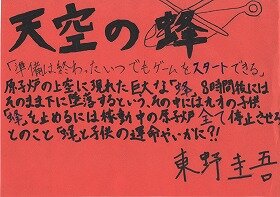 天空の蜂
「準備は終わった。いつでもゲームをスタートできる。」
原子炉の上空に現れた巨大な「蜂」8時間後には
そのまま下に墜落するという。その中には九才の子供
「蜂」を止めるには稼動中の原子炉全て停止させろ
とのこと「蜂」と子供の運命やいかに?!
東野圭吾